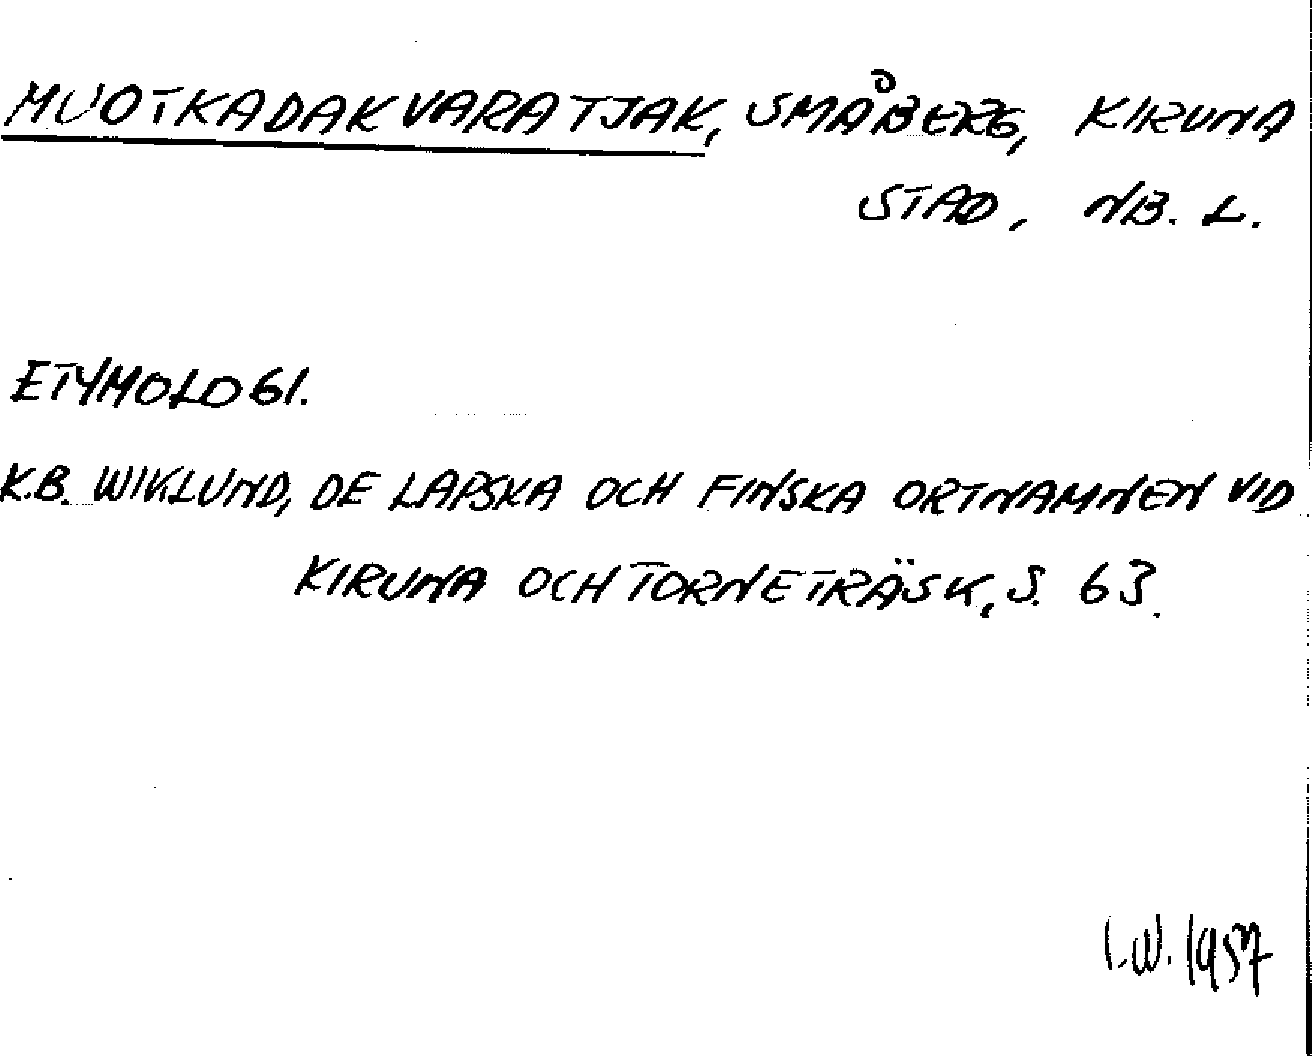 MUOTKADAKVARATJAK, SMÅBERG, KIRUNA
STAD, NB. L.
ETYMOLOGI.
K.B. WIKLUND, DE LAPSKA OCH FINSKA ORTNAMNEN VID
KIRUNA OCH TORNETRÄSK, S. 63.
I.W. 1957